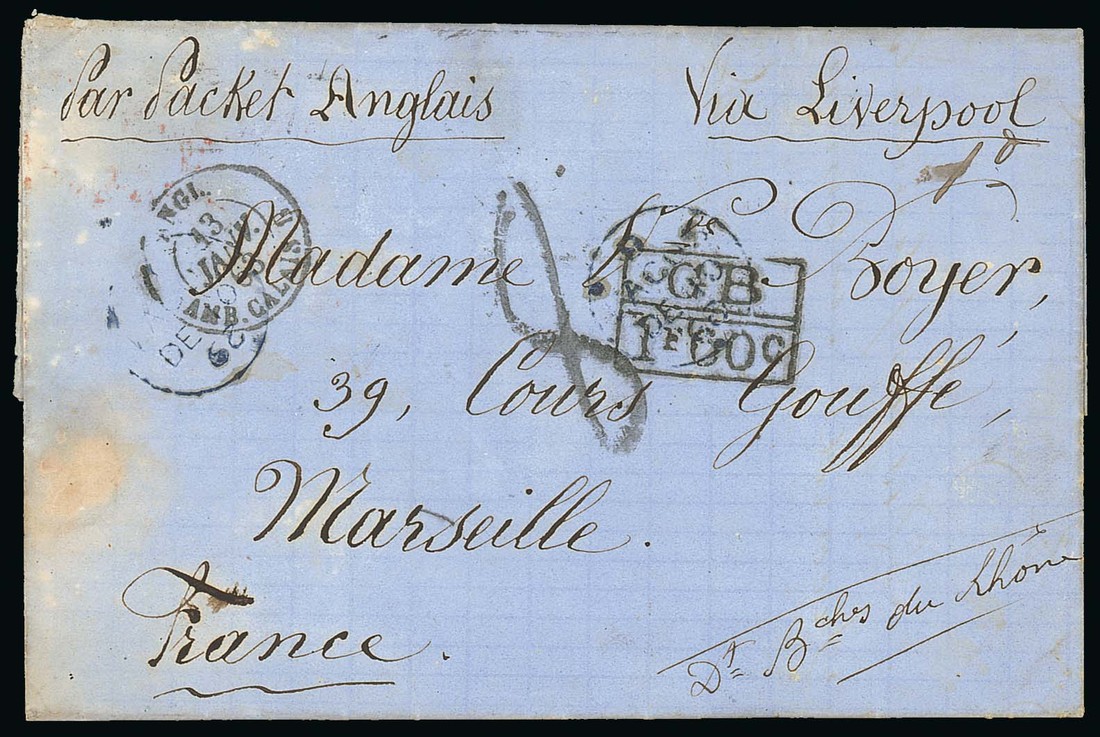 Par Packet Anglais
Via Liverpool
1d
ANGL.
13
JANV.
AMB. CALAIS
DE
GB
1F60c
Madame Vve Boyer,
39, Cours Gouffé,
Marseille.
France.
Dt Bches du Rhône